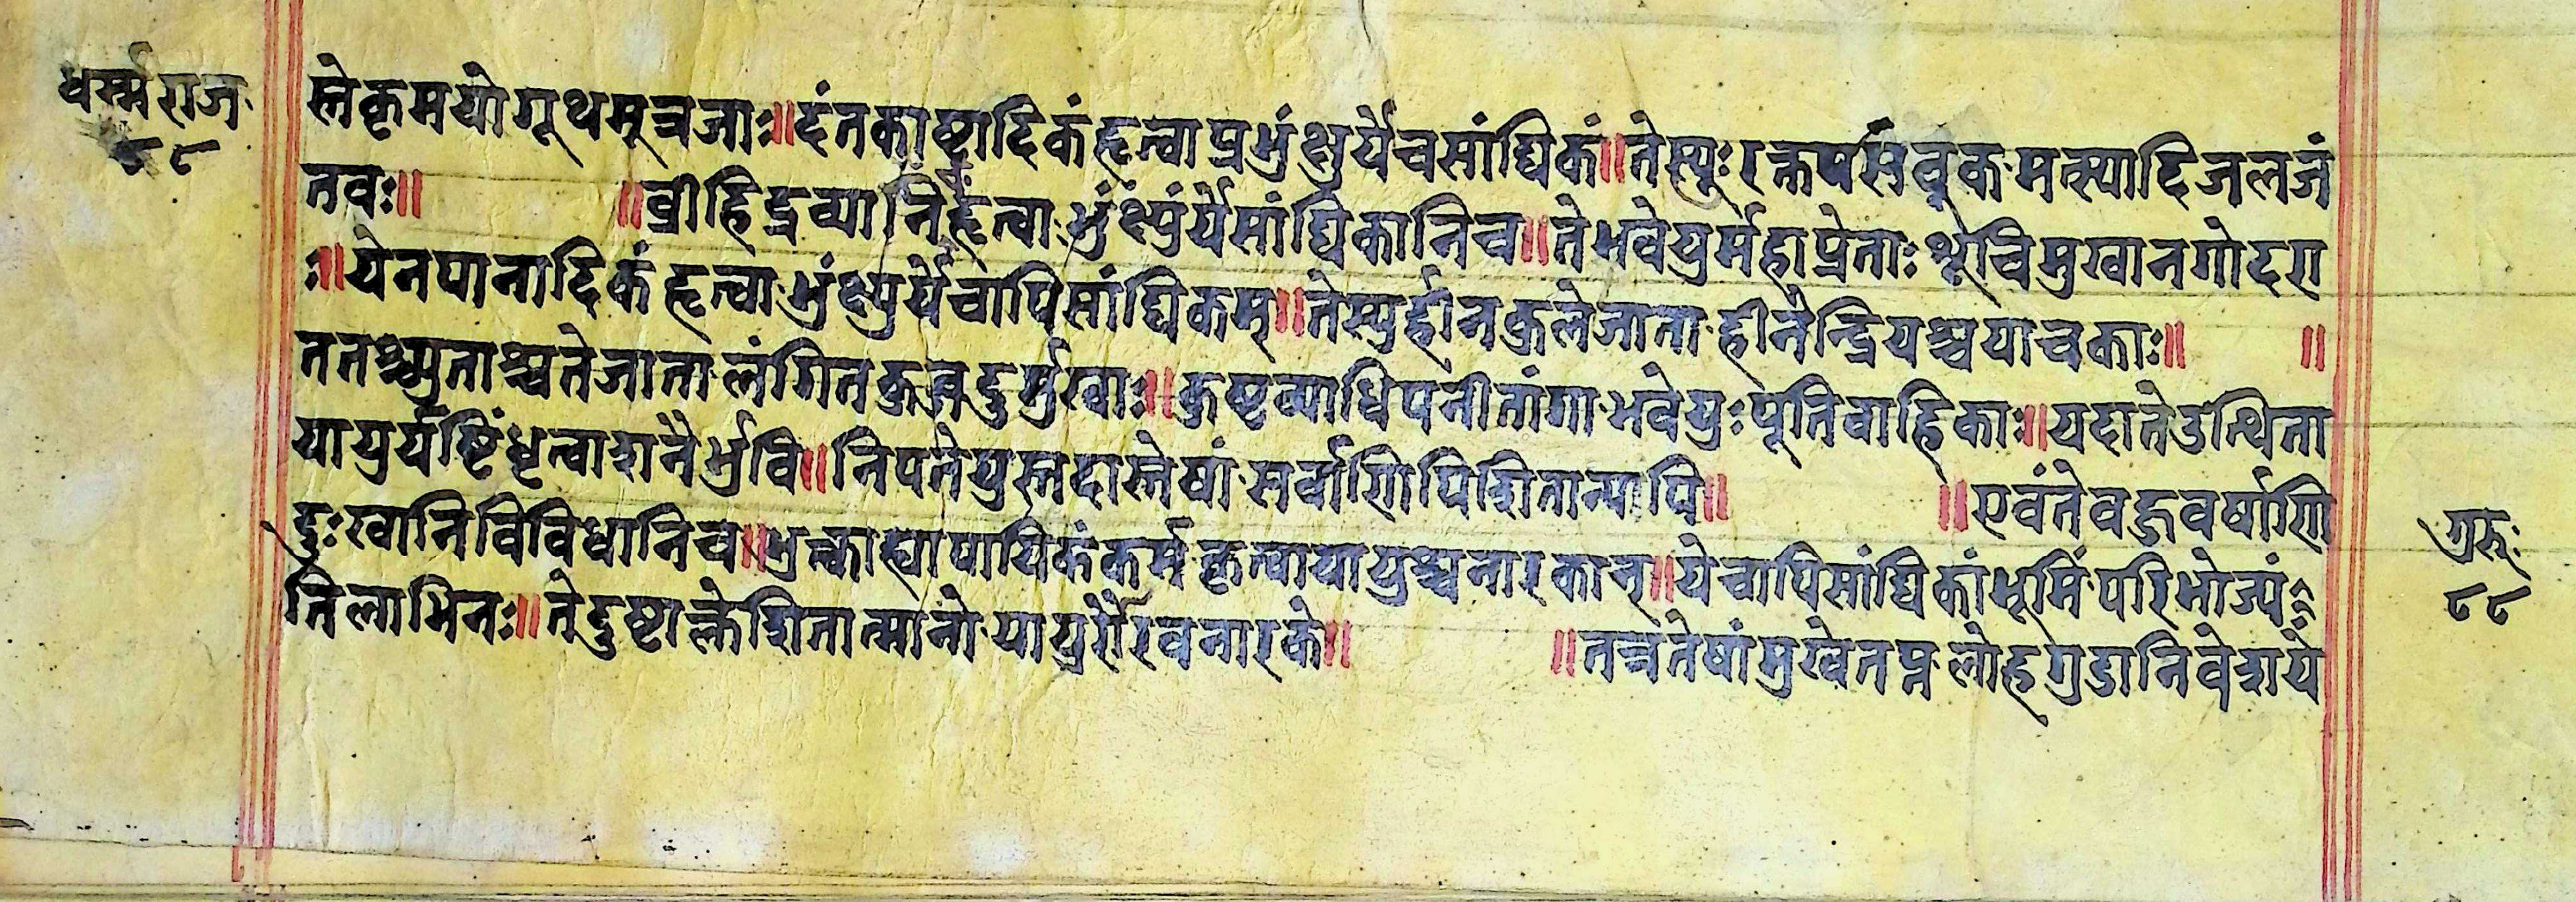 धर्म्मराज
८८
स्तेकृमयोगूथमूत्रजाः॥दंतकाष्ठादिकंहृत्वाप्रभुंक्षुर्येचसांघिकं॥तेस्युःरक्तपर्सवूकमत्स्यादिजलजं
तवः॥ ॥व्रीहिद्रव्यानिहृत्वाभुंक्ष्युंर्येसांघिकानिच॥तेभवेयुर्महाप्रेताःश्रूचिमुखानगोदरा
ः॥येनपानादिकंहृत्वाभुंक्ष्युर्येचापिसांघिकम्॥तेस्युर्हीनकुलेजाताहीनैन्द्रियश्चयाचकाः॥ ॥
ततश्च्युताश्चतेजातालंगितकुव्रदुर्मुखाः॥कुष्टव्याधिपनीतांगाभवेयुःपूतिवाहिकाः॥यदातेउत्थिता
यायुर्यष्टिंधृत्वाशनैर्भुवि॥निपतेयुस्तदास्तेषांसर्वाणिपिशितान्यपि॥ ॥एवंतेवहुवर्षाणि
दुःखानिविविधानिच॥भुत्क्वाह्यापायिकंकर्मकृत्वायायुश्चनारकान्॥येचापिसांघिकांभूमिंपरिभोज्यं
तिलाभिनः॥तेदुष्टाक्लेशितात्मानोयायुर्रौरवनारके॥ ॥तत्रतेषांमुखेतप्तलोहगुडानिवेशये
गुरूः
८८